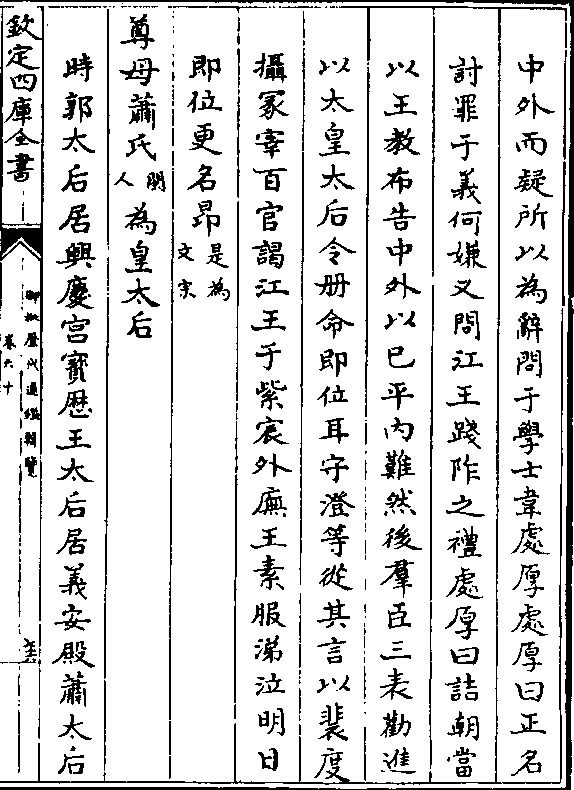 中外而疑所以為辭問于學士韋處厚處厚曰正名
討罪于義何嫌又問江王踐阼之禮處厚曰詰朝當
以王教布告中外以已平內難然後羣臣三表勸進
以太皇太后令册命即位耳守澄等從其言以裴度
攝冢宰百官謁江王于紫宸外廡王素服涕泣明日
即位更名昂是為文宗
尊母蕭氏閩人為皇太后
時郭太后居興慶宫寳歴王太后居義安殿蕭太后
欽定四庫全書
御批歴代通鑑輯覽
卷六十